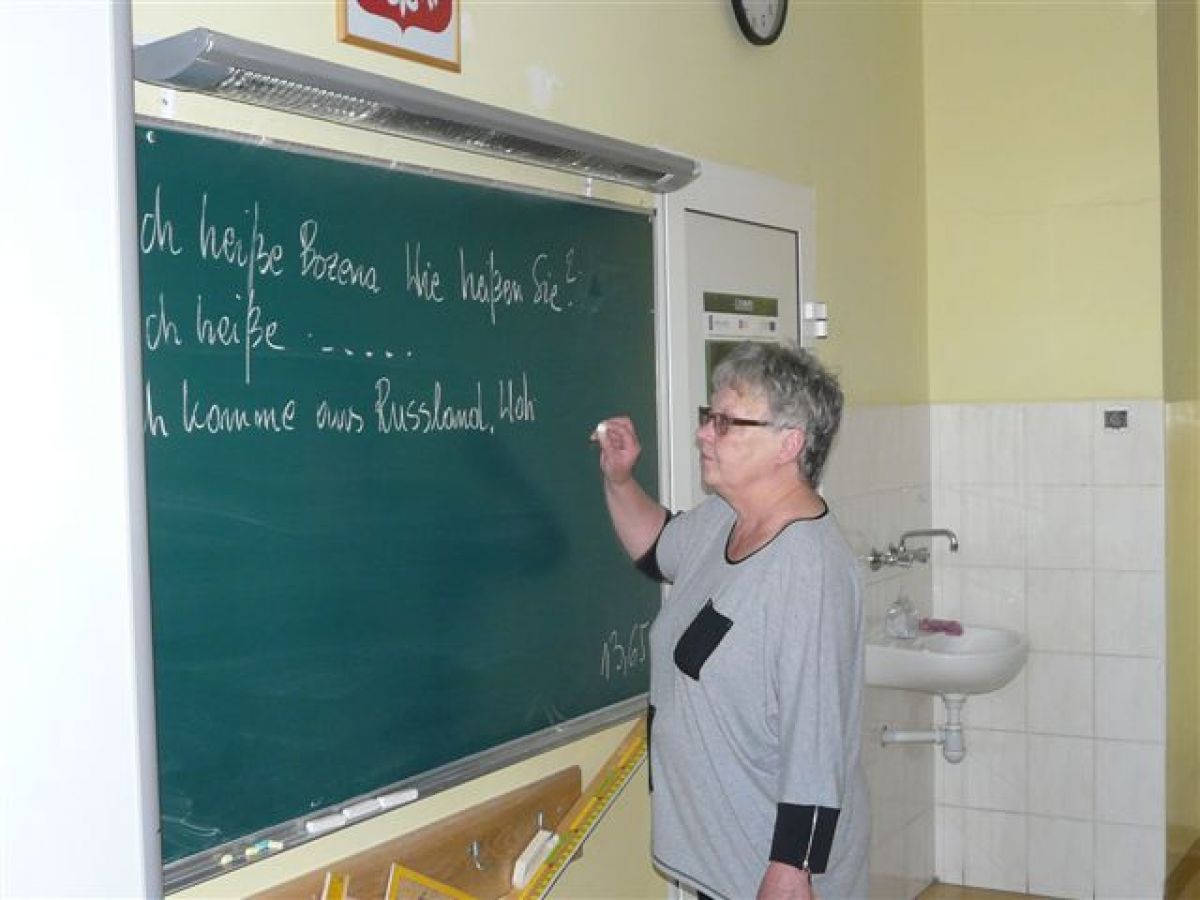 ch heiße Bozena Wie haßen Sie?
ch heiße .-----
h komme aus Russland. Woh
13,65